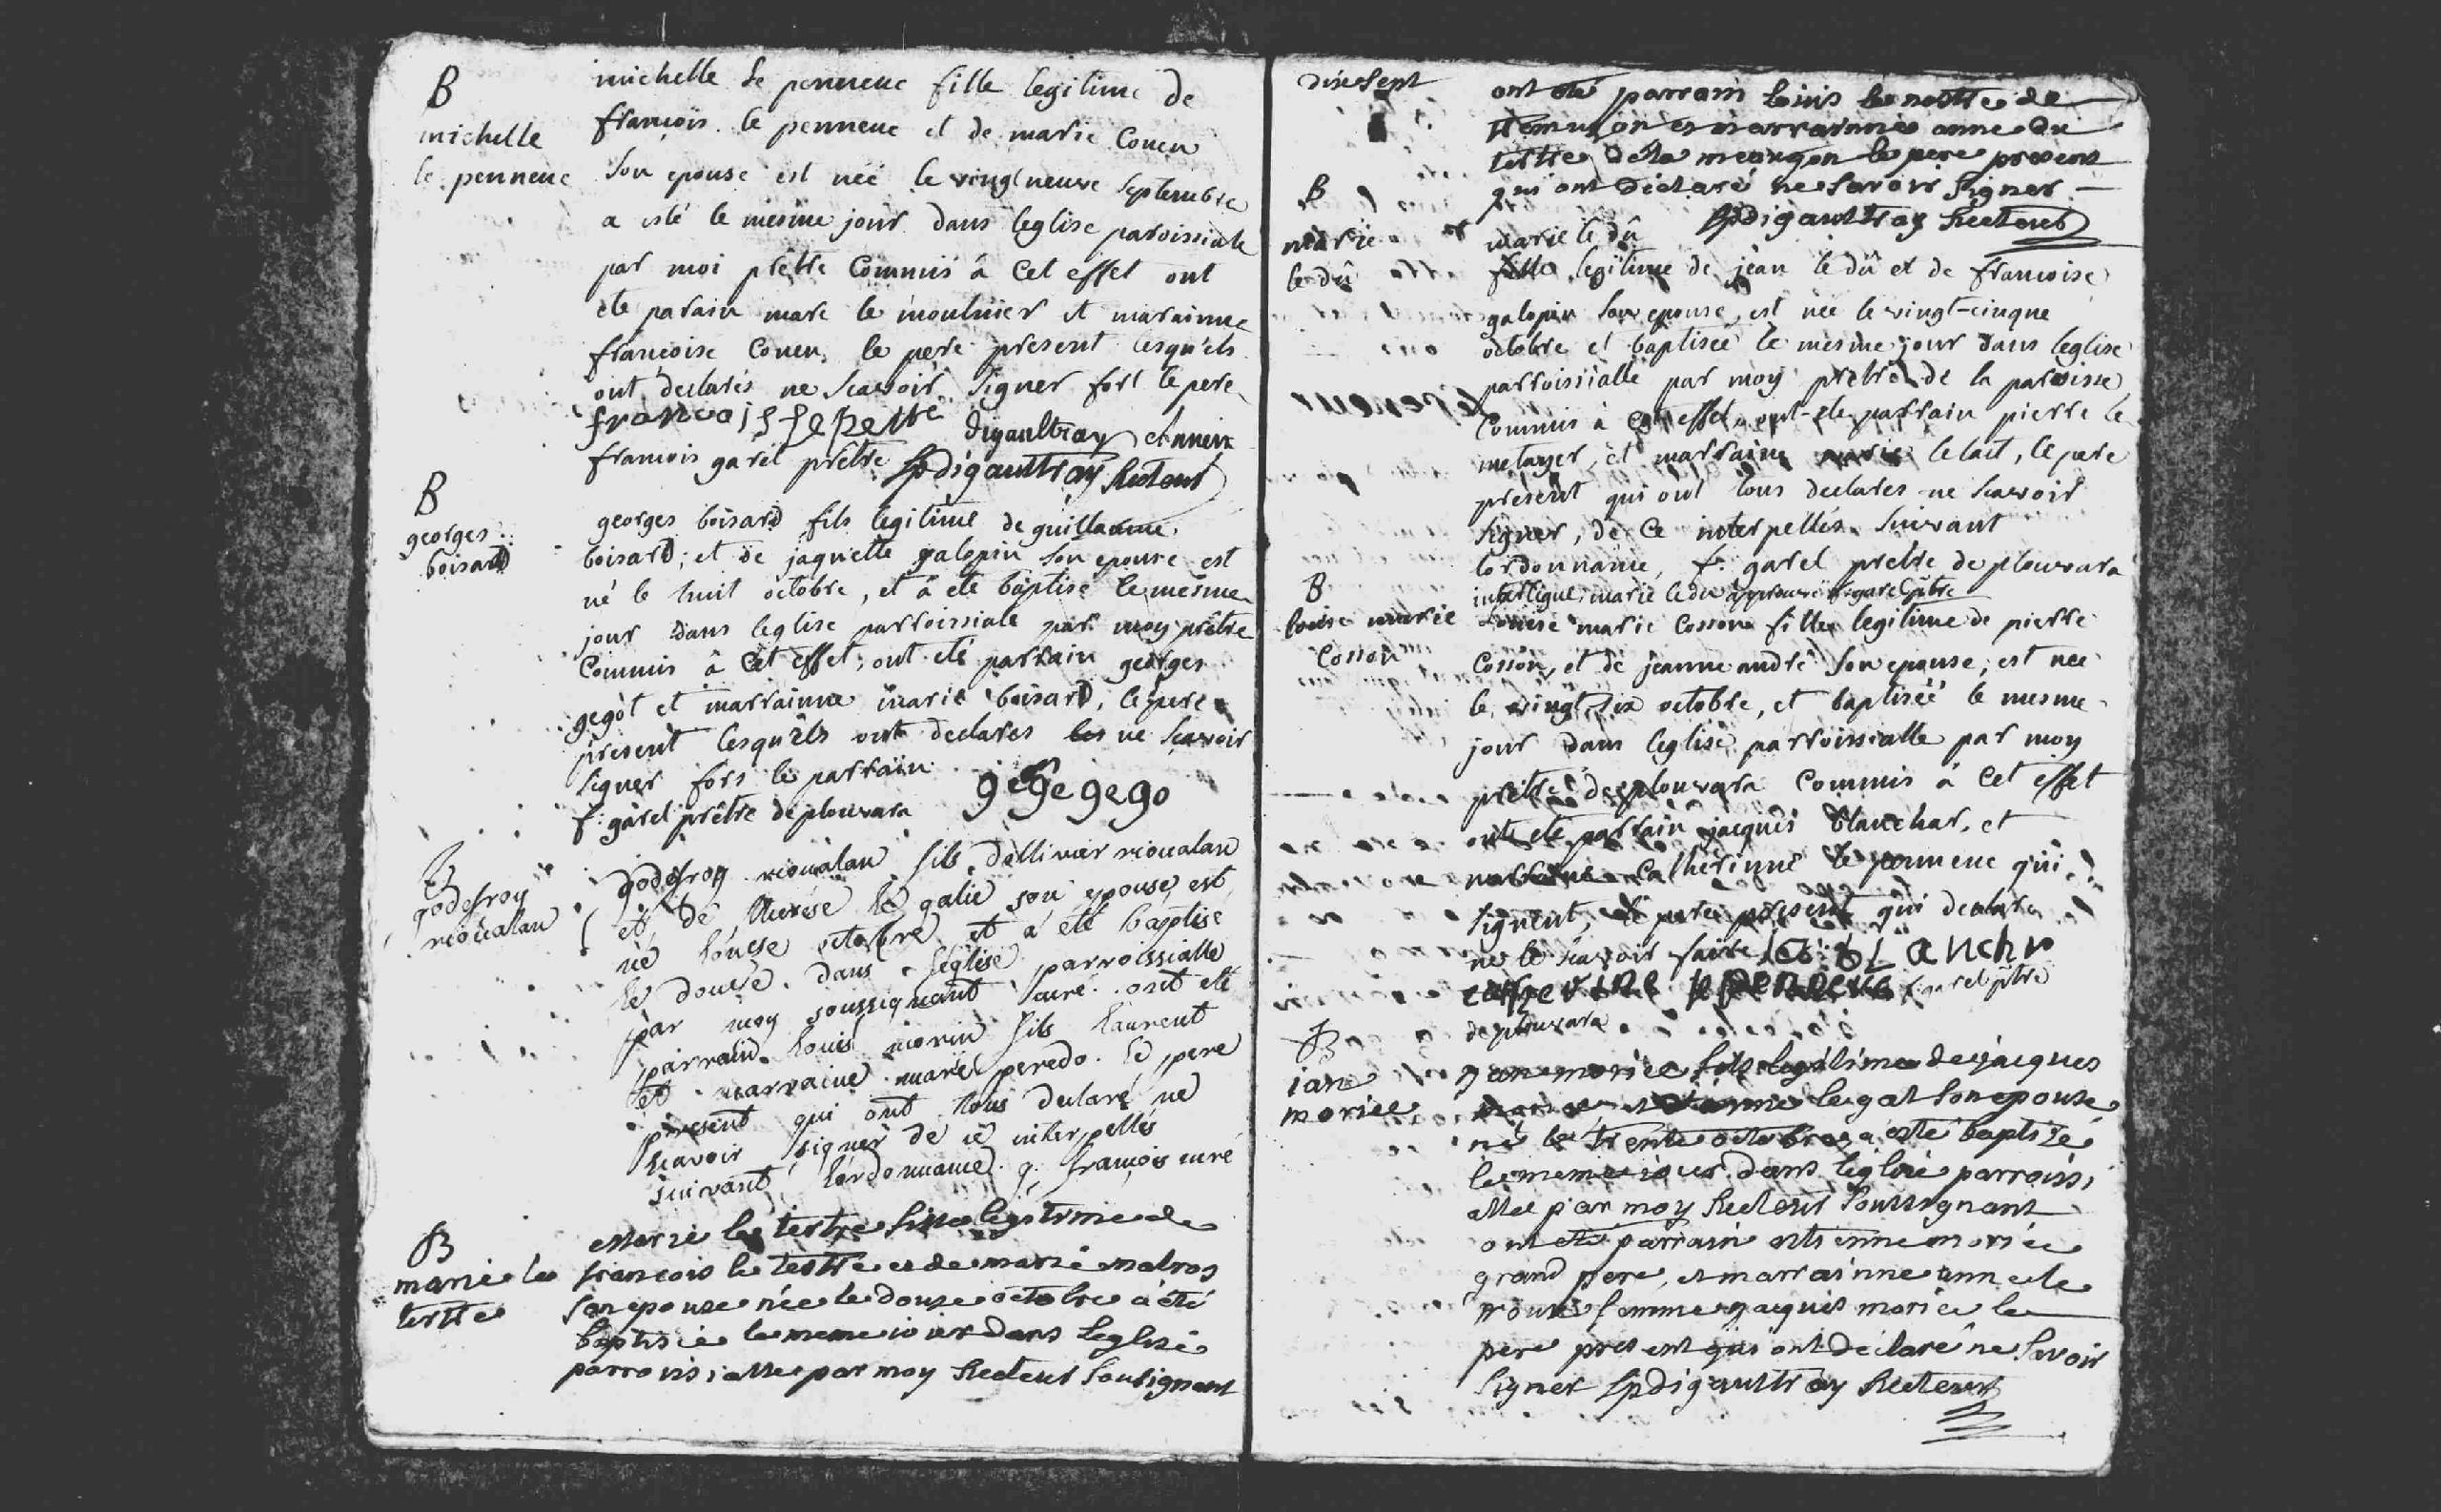 B
michelle
le penneuc
michelle le penneuc fille legitime de
francois le penneuc et de marie Couen
son epouse est néé le vingt neuve septembre
a esté le mesme jour dans leglise paroissiale
par moi prêtre Commis â Cet effet ont
ete parain marc le moulnier et marainne
francoise Couen, le pere present lesqu'els
ont declarés ne scavoir signer fors le pere
digaultray
francois garel prêtre digaultray Recteur
B
georges
boisard
georges boisard fils legitime de guillaume
boisard; et de jaquette galopin son epouse est
né le huit octobre, et â ete baptisé le mesme
jour dans leglise parroissiale par moy prêtre
Commis â Cet effet; ont eté parrain georges
gegot et marrainne marie boisard, le pere
present lesqu'ils ont declarés ne scavoir
signer fors le parrain
f: garel prêtre de plouvara gege gego
B
godefroy
rioualan
godefroy rioualan fils dollivier rioualan
et de therese le galié son epouse, est
né lonese octobre et a été baptisé
le douse dans leglise parroissialle
par moy soussignant curé ont eté
parrain louis morin fils laurent
et marraine marie peredo le pere
present qui ont tous declaré ne
scavoir signer de ce interpellés
suivant lordonnance g. francois curé
B
marie le
tertre
marie le tertre fille legitime de
francois le tertre et de marie malros
son epouse née le douze octobre a été
baptisée le meme iour dans leglise
parroissialle par moy Recteur Sousignant
dixsept
ont eté parrain louis le nostre de
et marrainne anne du
tertre de la meaugon le pere present
qui ont déclaré ne savoir signer
digaultray Recteur
B
marie
le dû
marie le dû
fille legitime de jean le dû et de francoise
galopin son epouse, est néé le vingt-cinque
octobre et baptiseé le mesme jour dans leglise
parroissialle par moy prêtre de la paroisse
Commis à cet effet, ont ete parrain pierre le
metayer, et marraine marie letait, le pere
present qui ont tous declarés ne scavoir
signer, de Ce interpellés suivant
lordonnance, f: garel prêtre de plouvara
interligne: marie le du approuvé f: garel ptre
B
louise marie
Cosson
louise marie Cosson fille legitime de pierre
Cosson, et de jeanne andré son epouse, est néé
le vingt six octobre, et baptiséé le mesme
jour dans leglise parroissialle par moy
prêtre de plouvara Commis â Cet effet
ont ete parrain jacques blanchar, et
marraine Catherinne le penneuc qui
signent, le pere present qui declare
ne le scavoir faire
f: garel ptre
de plouvara
B
ian
moriee
fils legitime de jacques
et le gat son epouse
né le trente octobre a esté baptizé
le meme iour dans leglise parroissi
alle par moy Recteur soussignant
ont eté parrain moriee
grand pere, et marrainne anne le
femme jacques moriee le
pere present qui ont déclaré ne savoir
signer digaultray Recteur